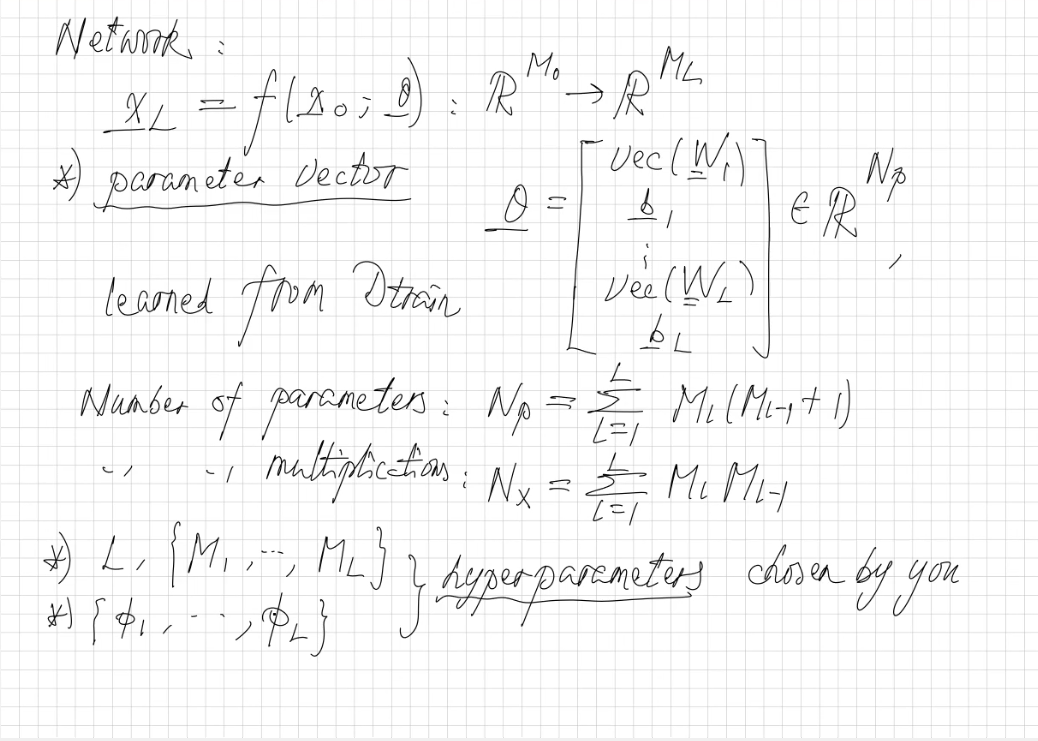 Network:
x_L = f(x_0; θ) : ℝ^{M_0} → ℝ^{M_L}
*) parameter vector
θ = [vec(W_1) b_1 ⋮ vec(W_L) b_L] ∈ ℝ^{N_p},
learned from Dtrain
Number of parameters: N_p = Σ_{l=1}^{L} M_l (M_{l-1} + 1)
〃 〃 multiplications: N_x = Σ_{l=1}^{L} M_l M_{l-1}
*) L, {M_1, ..., M_L} } hyperparameters chosen by you
*) {ϕ_1, ..., ϕ_L}